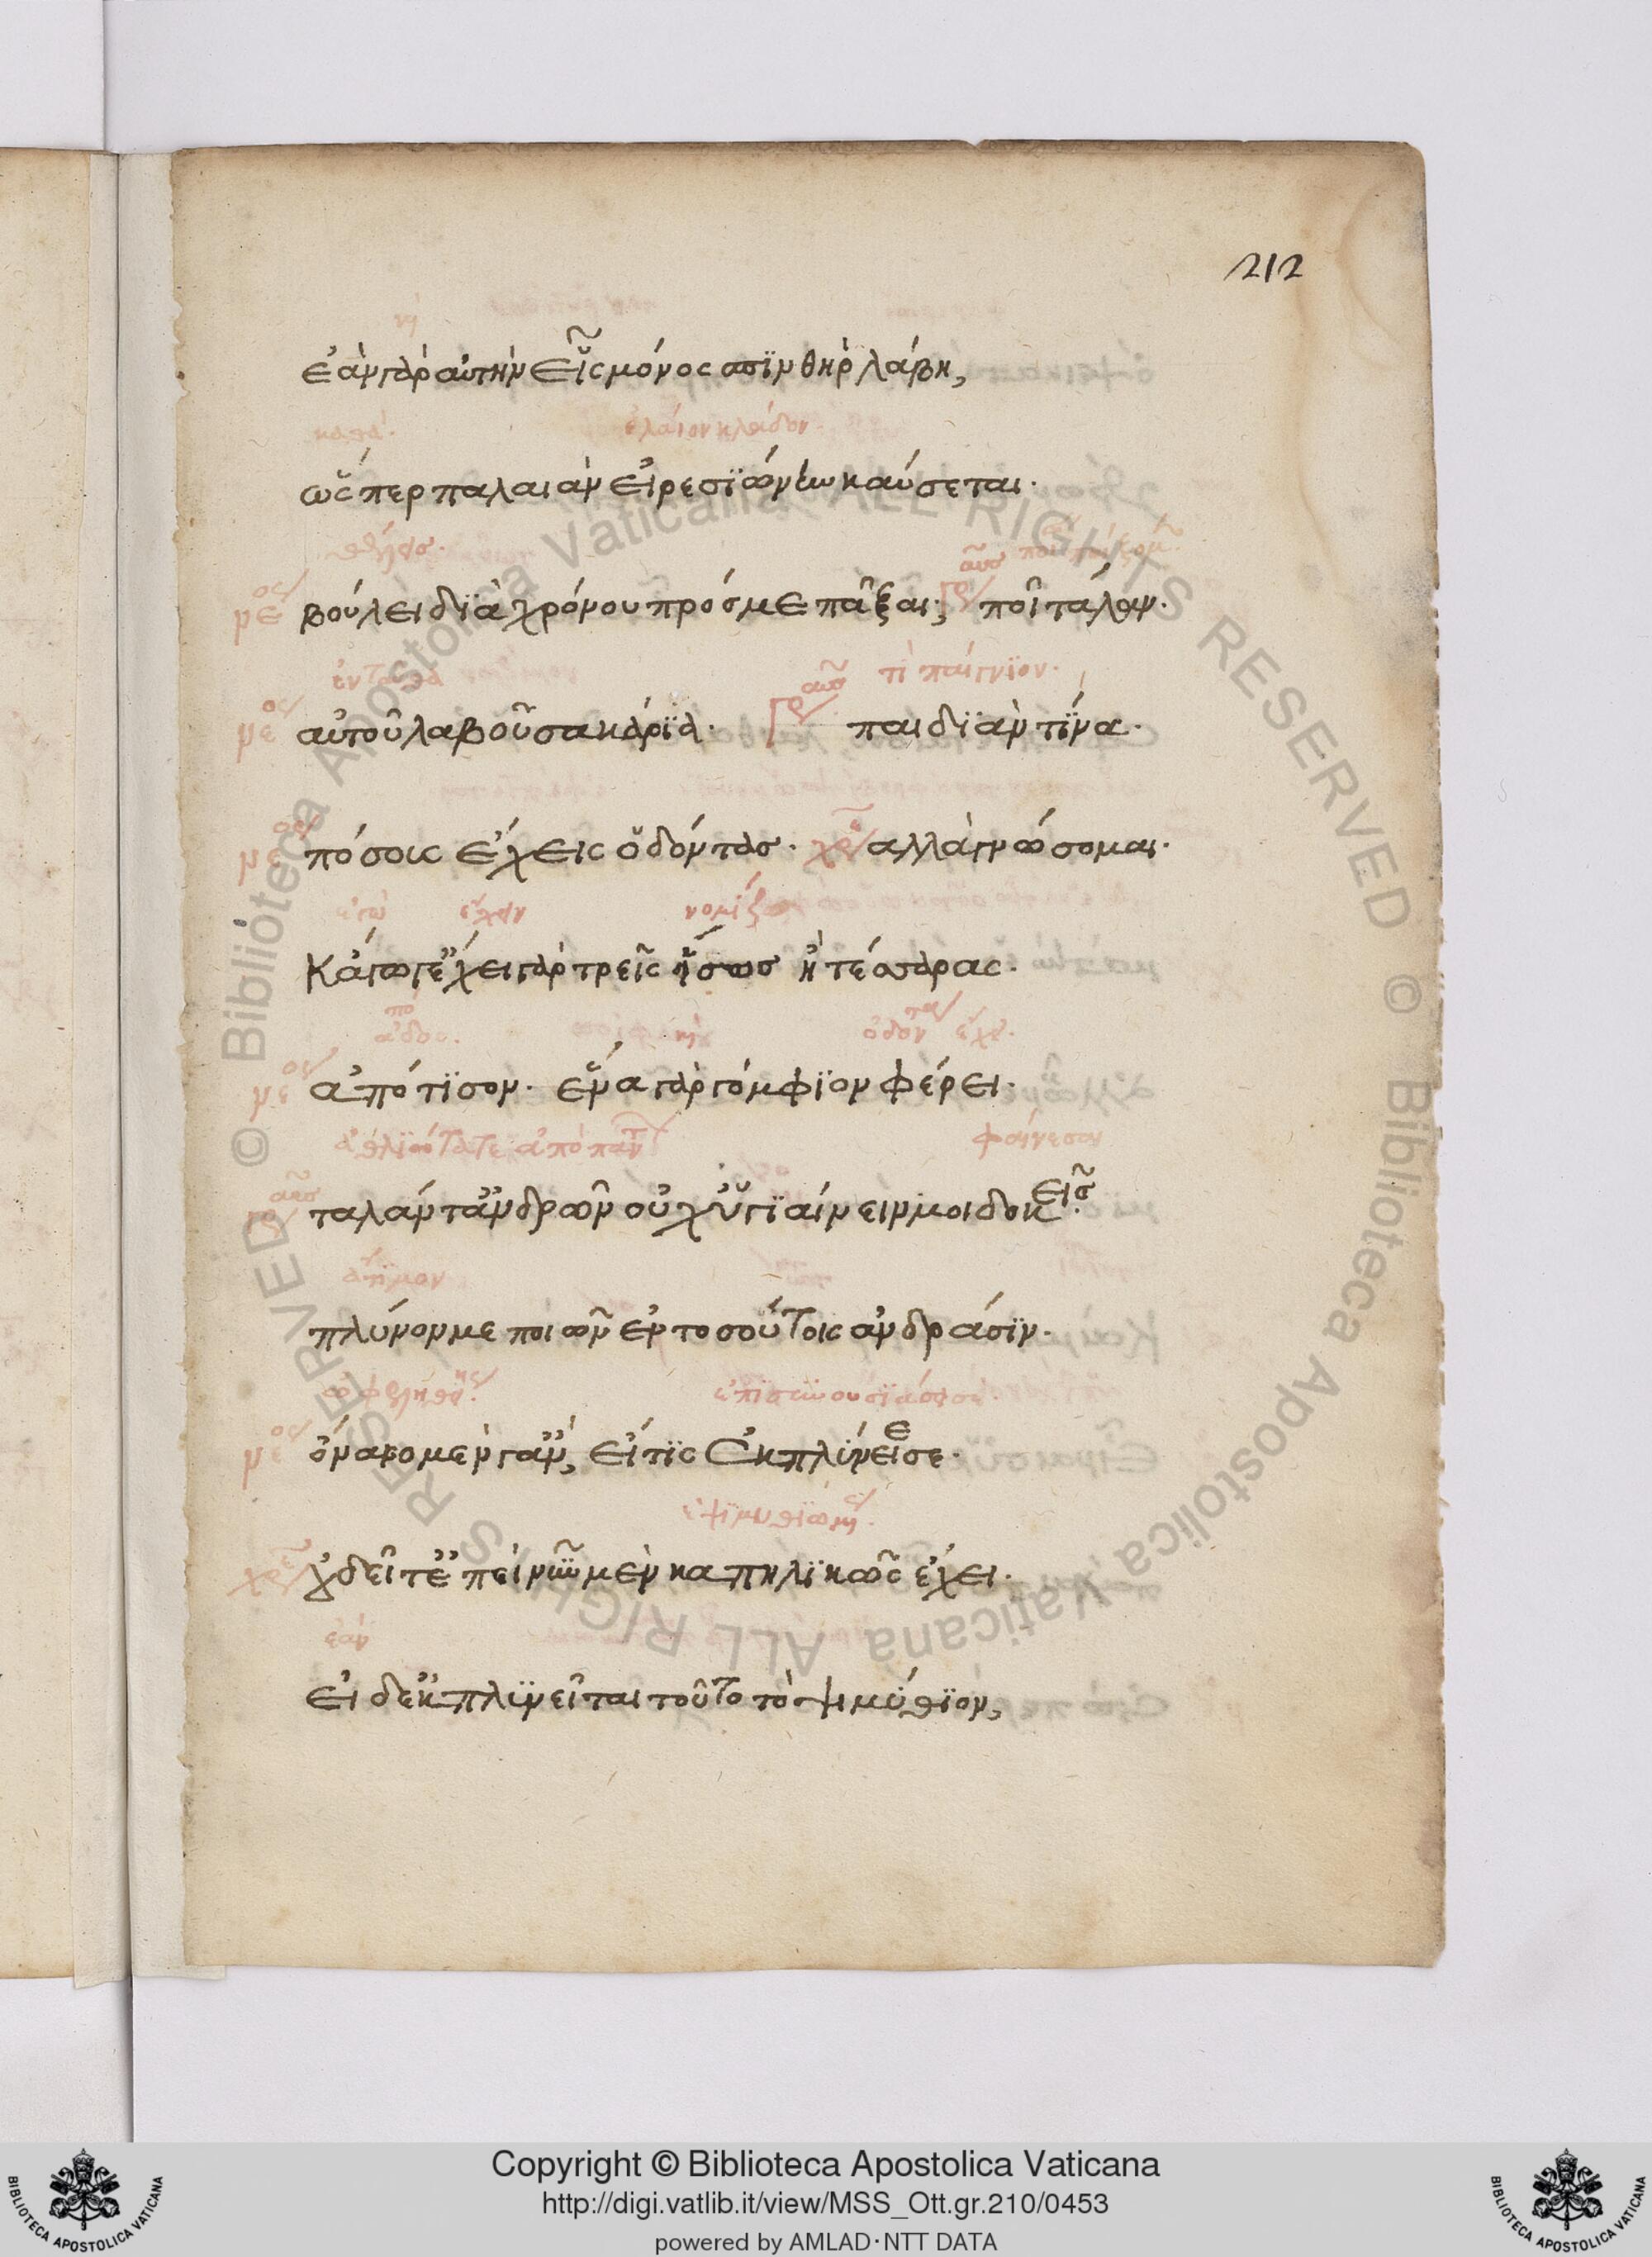 212
ἐὰν γὰρ αὐτὴν εἷς μόνος σπϊνθὴρ λάβη,
καθά· ἐλάϊον κλάδον·
ὥσπερ παλαιὰν εἰρεσϊώνην καύσεται·
βούλει δϊὰ χρόνου πρός με παῖξαι; ποῖ τάλαν·
ἐνταυθὰ τὶ παίγνϊον·
αὐτοῦ λαβοῦσα κάρϋα· παιδϊὰν τίνα·
πόσοις ἔχεις ὀδόντας· ἀλλὰ γνώσομαι·
ἐγὼ εἶχεν νομίζω
κἄγωγ' ἔχει γὰρ τρεῖς ἴσως ἢ τέσσαρας·
ἀπότϊσον· ἕνα γὰρ γόμφϊον φέρει·
ἀθλϊώτατε ἀπὸ παντ φαίνεσαι
ταλάντἀνδρῶν οὐχ ὑγϊαίνειν μοι δοκεῖς·
ἄτϊμον
πλύνον με ποιῶν ἐν τοσούτοις ἀνδράσϊν·
ὄναιο μὲν γἂν, εἴ τϊς ἐκπλϋνεῖε σε·
οὐ δεῖτ' ἐπεὶ νῦν μὲν καπηλϊκῶς ἔχει·
ἐὰν
εἰ δ' ἐκπλϋνεῖται τοῦτο τὸ ψιμύθϊον,
Copyright © Biblioteca Apostolica Vaticana
http://digi.vatlib.it/view/MSS_Ott.gr.210/0453
powered by AMLAD·NTT DATA
BIBLIOTECA APOSTOLICA VATICANA
BIBLIOTECA APOSTOLICA VATICANA
© Biblioteca Apostolica Vaticana ALL RIGHTS RESERVED
© Biblioteca Apostolica Vaticana ALL RIGHTS RESERVED